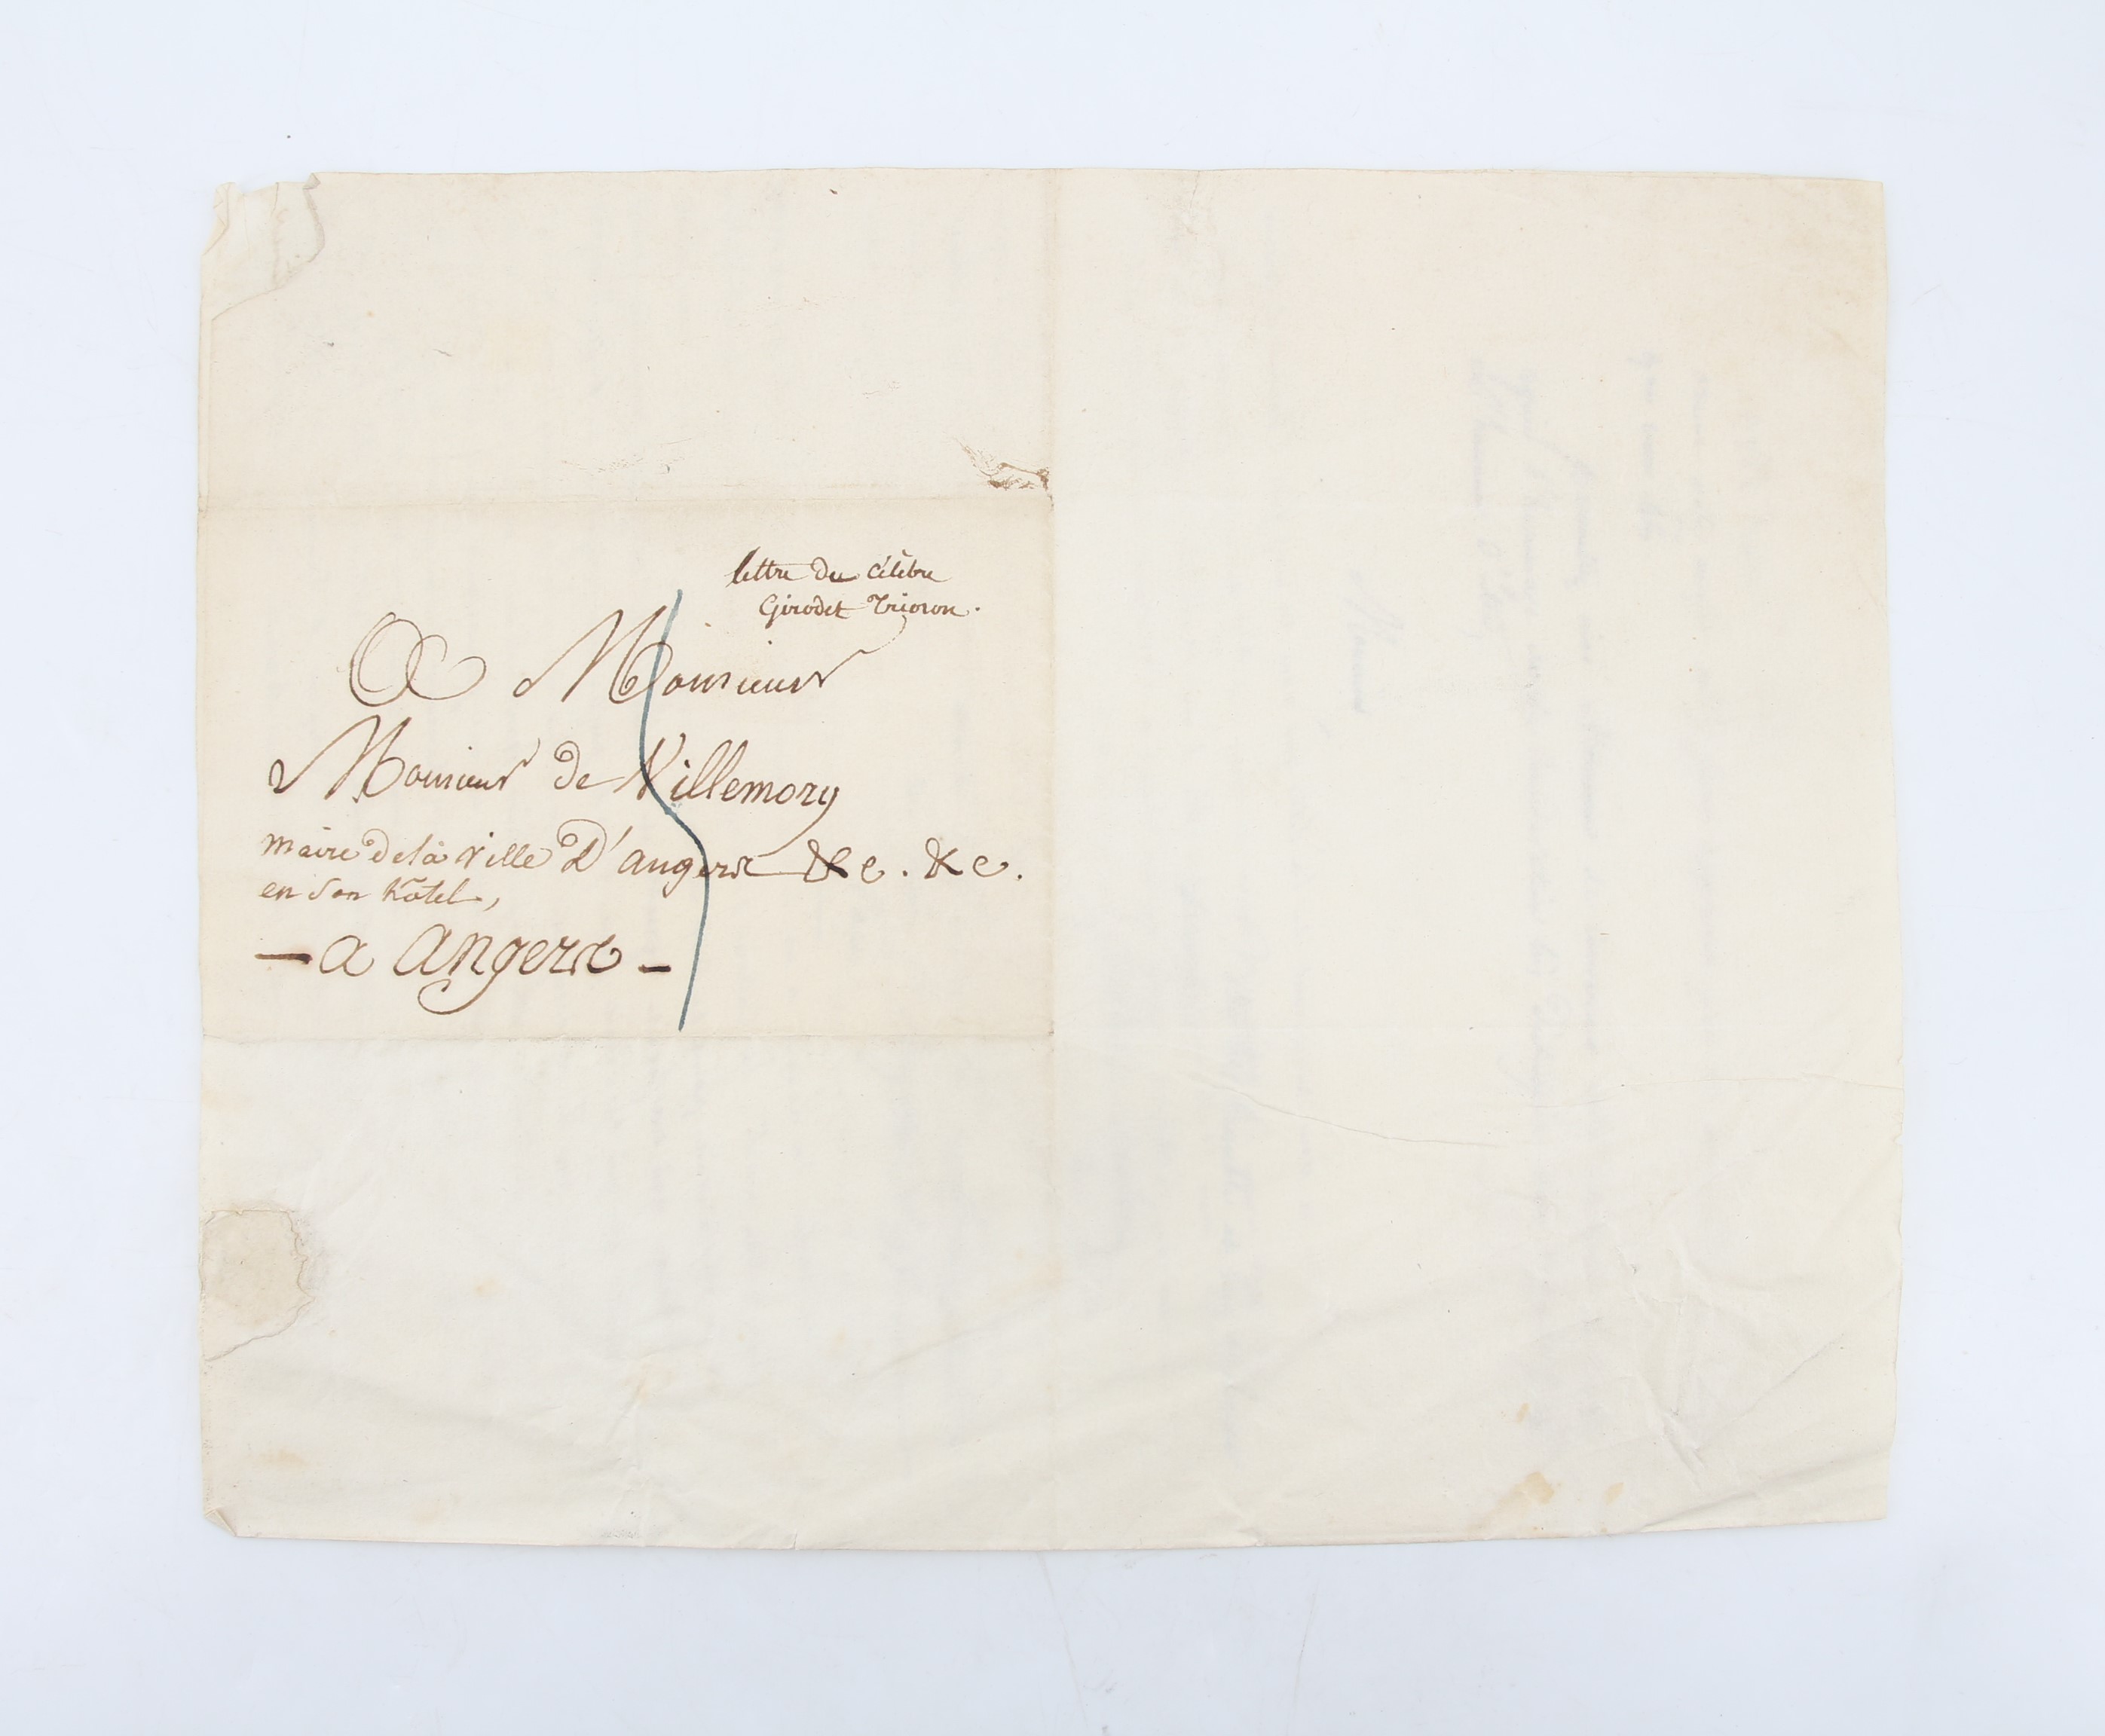 lettre du célèbre
Girodet Trioson.
A Monsieur
Monsieur de Villemory
maire de la ville D'angers &c. &c.
en son hôtel,
— a Angers —